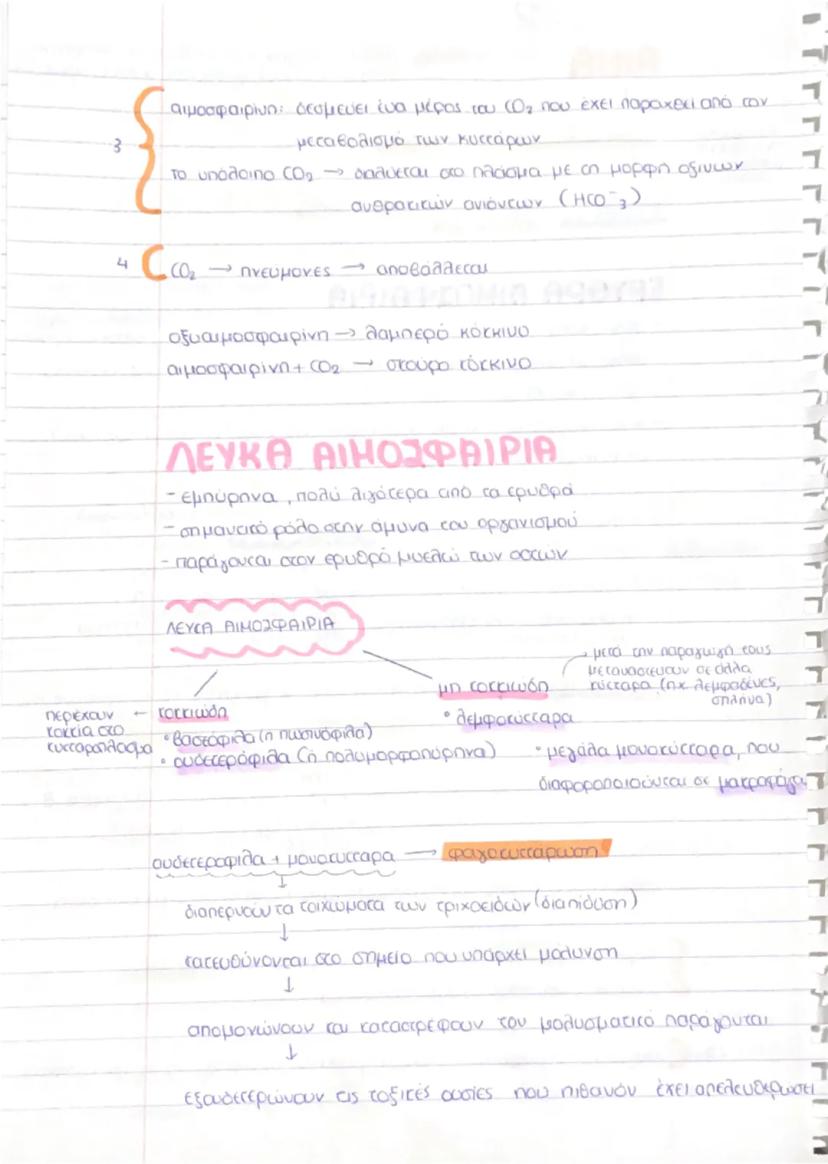 3
αιμοσφαιρίνη: δεσμεύει ένα μέρος του CO₂ που έχει παραχθεί από τον
μεταβολισμό των κυττάρων
το υπόλοιπο CO₂ → διαλύεται στο πλάσμα με τη μορφή οξινων
ανθρακικών ανιόντων (HCO⁻₃)
4
CO₂ → πνεύμονες → αποβάλλεται
οξυαιμοσφαιρίνη → λαμπερό κόκκινο
αιμοσφαιρίνη + CO₂ → σκούρο κόκκινο
ΛΕΥΚΑ ΑΙΜΟΣΦΑΙΡΙΑ
- εμπύρηνα, πολύ λιγότερα από τα ερυθρά
- σημαντικό ρόλο στην άμυνα του οργανισμού
- παράγονται στον ερυθρό μυελό των οστών
ΛΕΥΚΑ ΑΙΜΟΣΦΑΙΡΙΑ
περιέχουν
κοκκία στο
κυτταρόπλασμα
← κοκκιώδη
• βασεόφιλα (ή ηωσινόφιλα)
• ουδετερόφιλα (ή πολυμορφοπύρηνα)
μη κοκκιώδη
→ μετά την παραγωγή τους
μεταναστεύουν σε άλλα
κύτταρα (πχ λεμφαδένες,
σπλήνα)
• λεμφοκύτταρα
• μεγάλα μονοκύτταρα, που
διαφοροποιούνται σε μακροφάγα
ουδετεροφιλα + μονοκυτταρα → φαγοκυττάρωση
↓
διαπερνούν τα τοιχώματα των τριχοειδών (διαπίδυση)
↓
κατευθύνονται στο σημείο που υπάρχει μόλυνση
↓
απομονώνουν και καταστρέφουν τον μολυσματικό παράγοντα
↓
εξουδετερώνουν τις τοξικές ουσίες που πιθανόν έχει απελευθερώσει